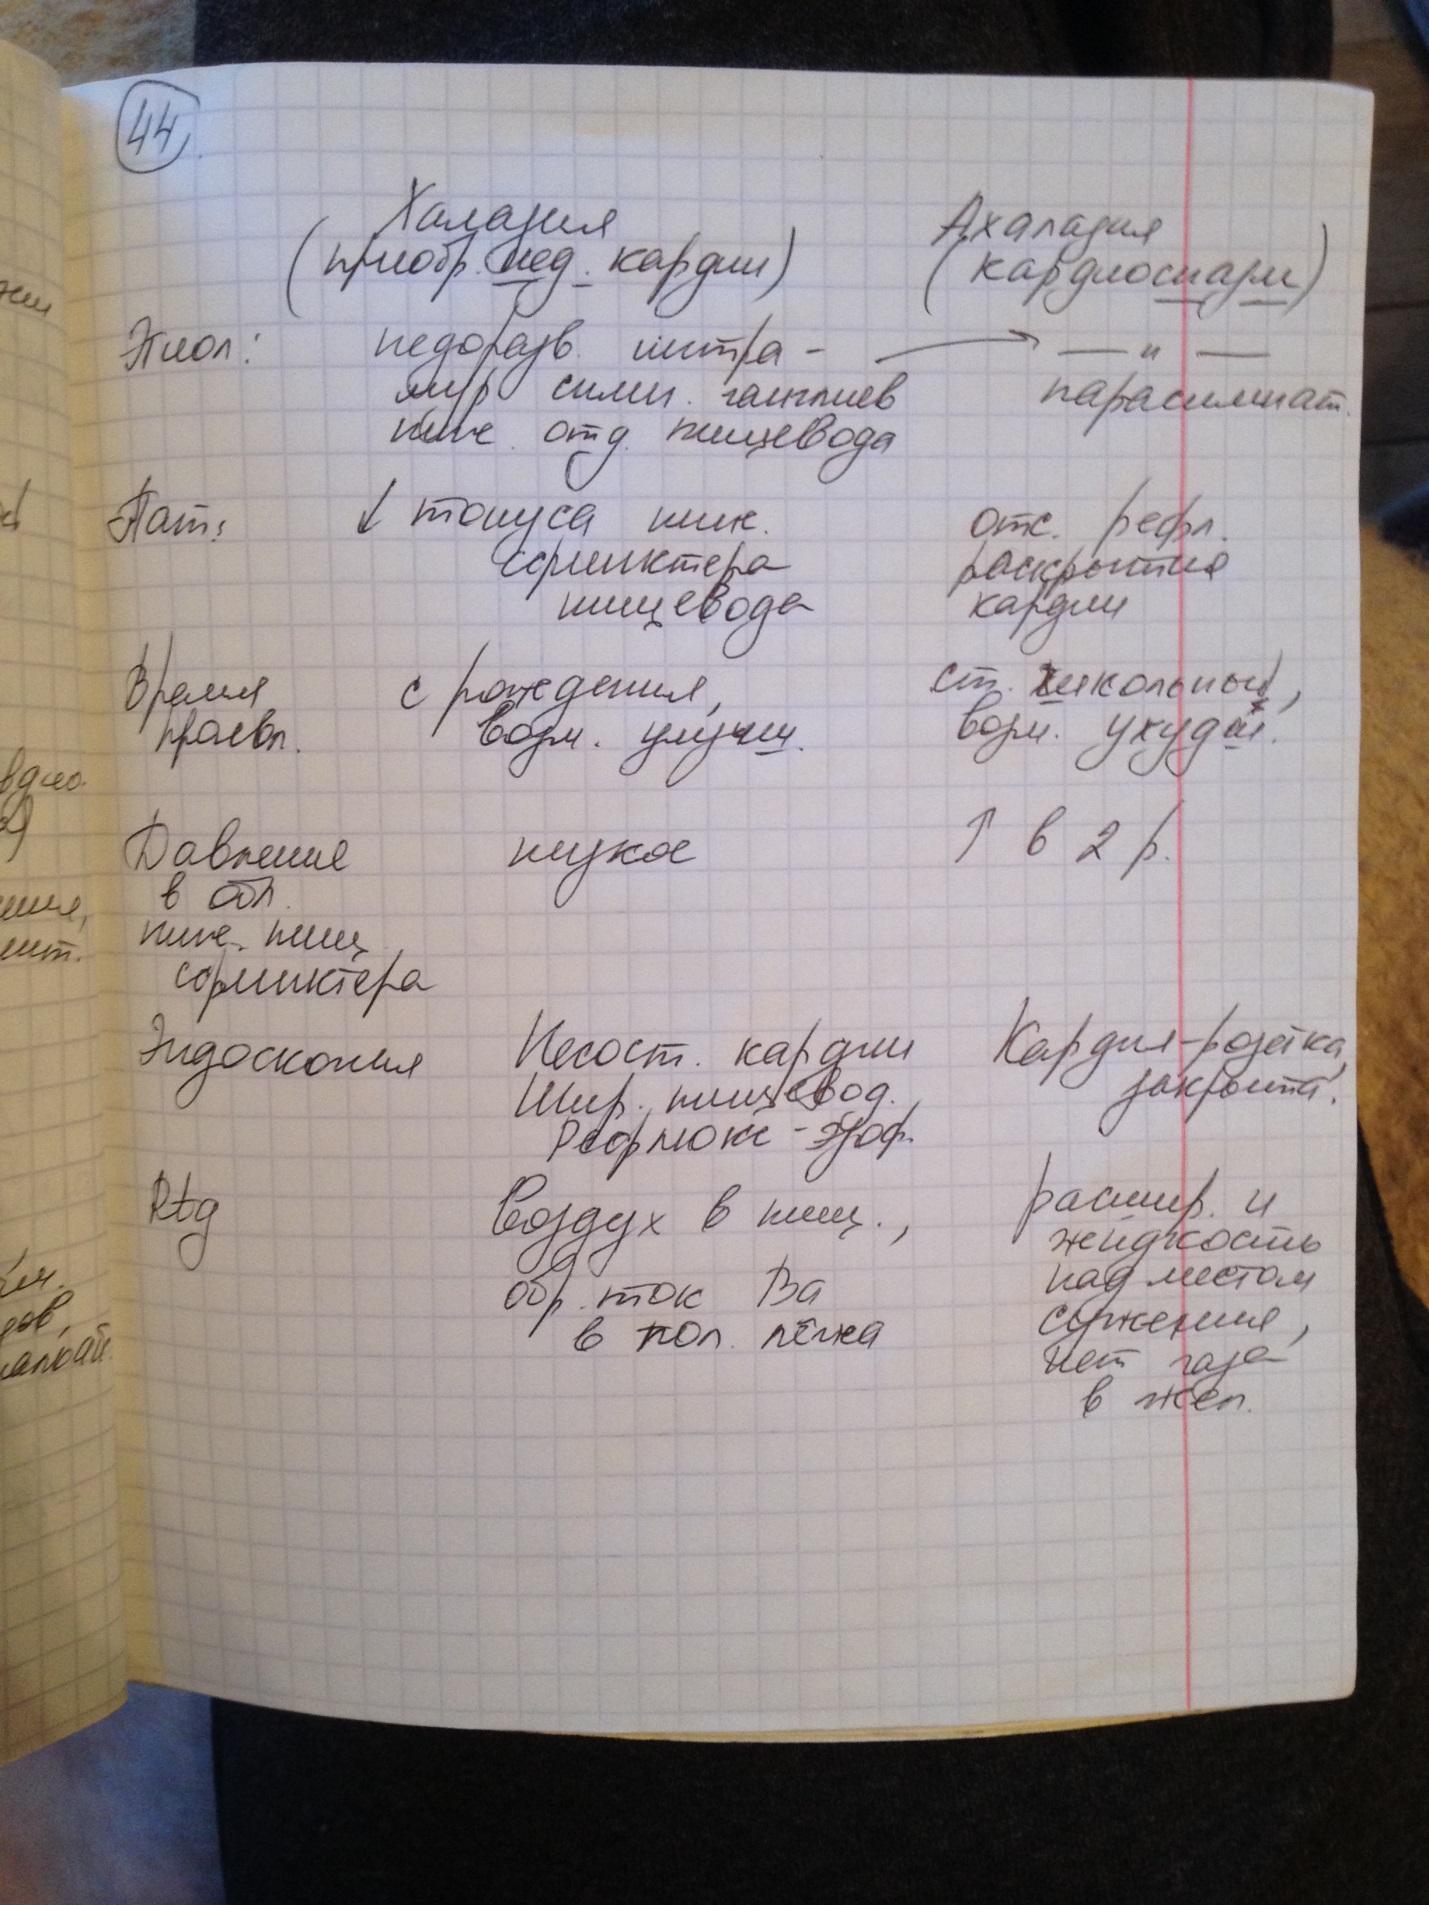 44
Халазия
Ахалазия
(приобр. нед. кардии)
(кардиоспазм)
Этиол: недоразв. интра- — " —
мур симп. ганглиев парасимпат.
ниж. отд. пищевода
Пат: ↓ тонуса ниж. отс. рефл.
сфинктера раскрытия
пищевода кардии
Время с рождения, ст. школьный,
проявл. возм. улучш. возм. ухудш.
Давление низкое ↑ в 2 р.
в обл.
ниж. пищ.
сфинктера
Эндоскопия Несост. кардии Кардия-розетка,
Шир. пищевод. закрыта.
Рефлюкс-эзоф.
Rtg Воздух в пищ., расшир. и
жидкость
обр. ток Ba над местом
в пол. лёжа сужения,
нет газа
в жел.